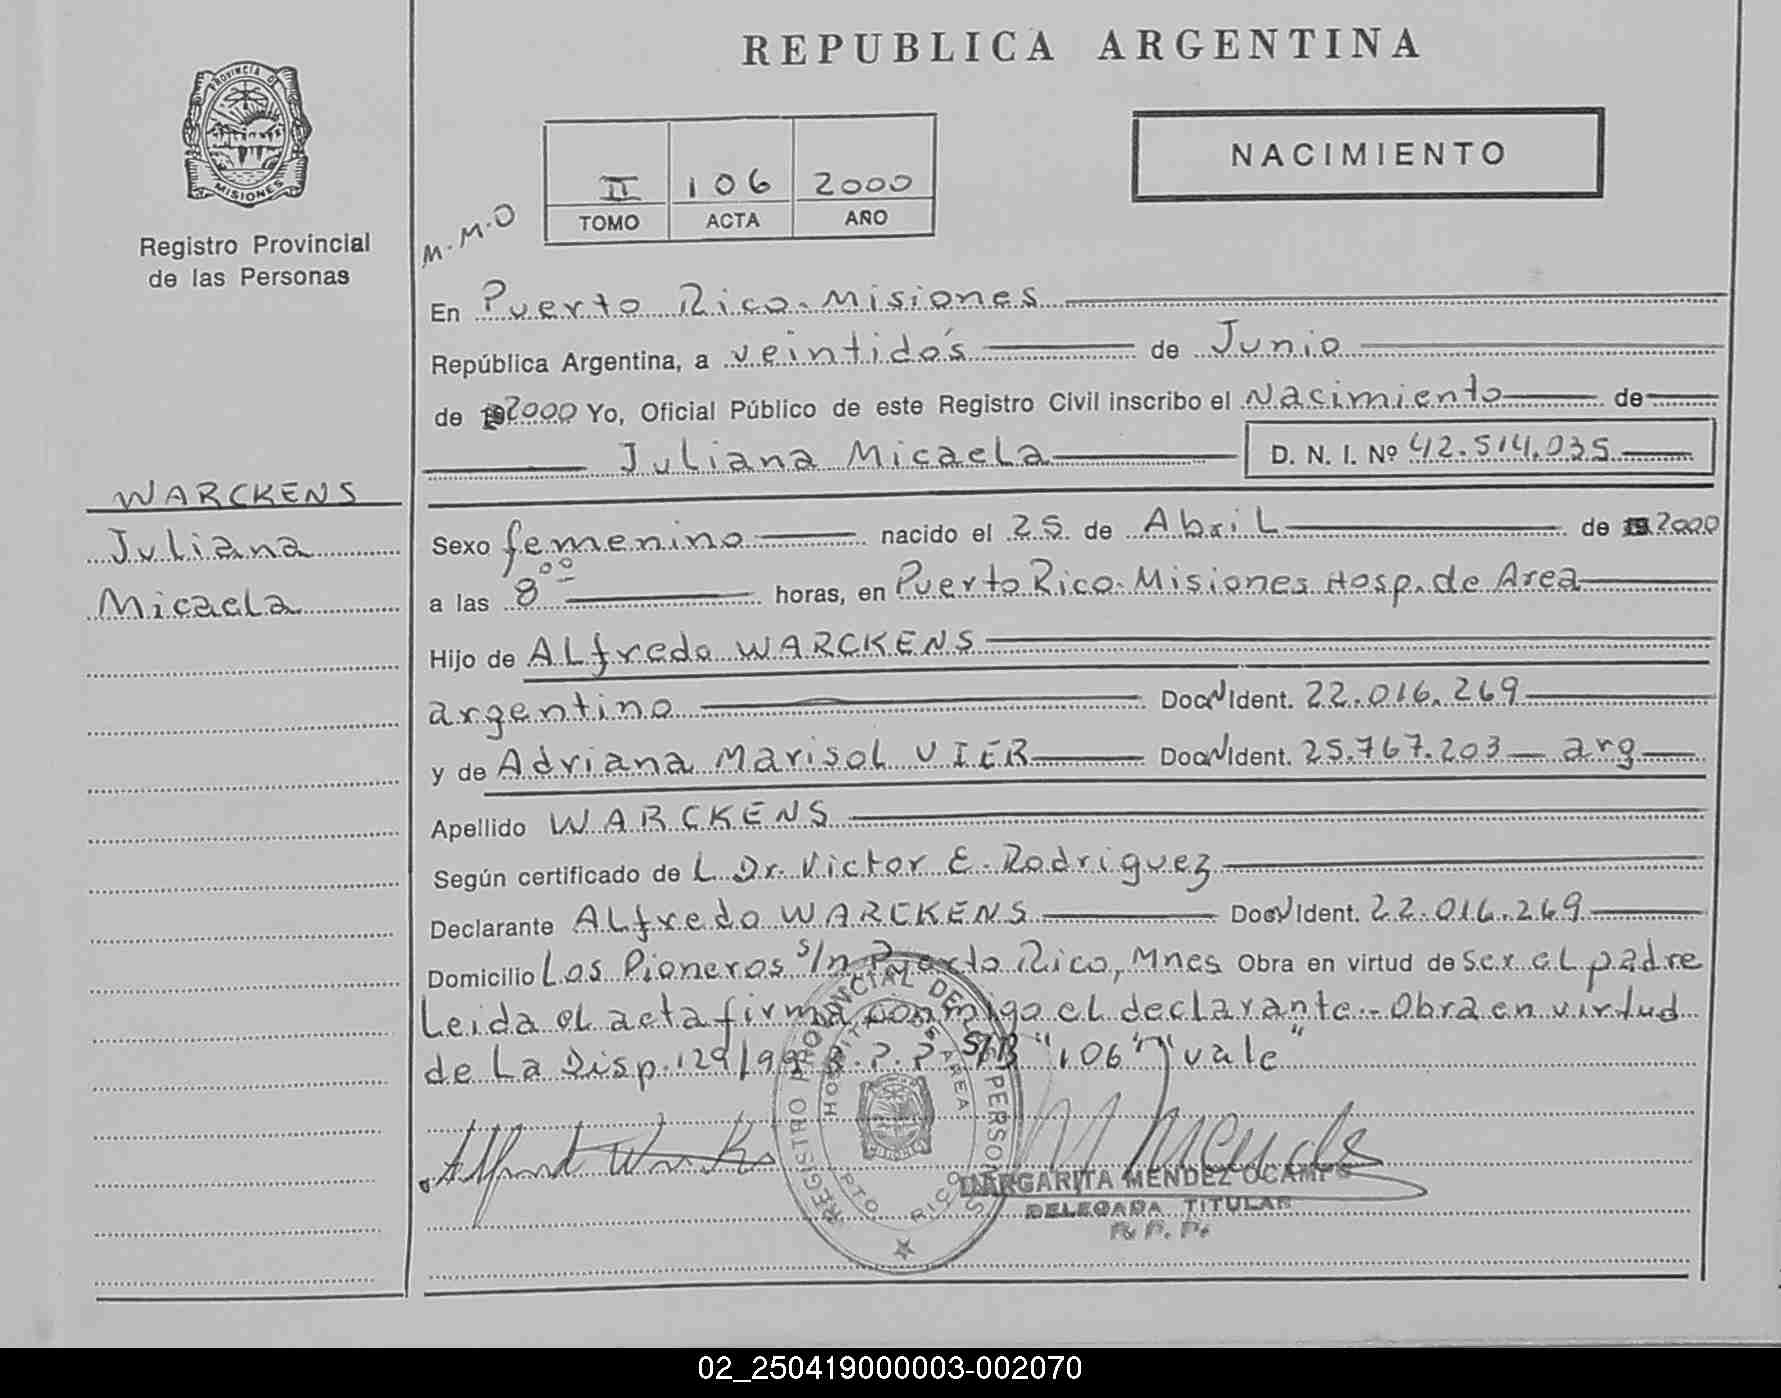 REPUBLICA ARGENTINA
PROVINCIA DE
MISIONES
Registro Provincial
de las Personas
NACIMIENTO
II 106 2000
TOMO ACTA AÑO
M.M.O
En Puerto Rico - Misiones
República Argentina, a veintidós de Junio
de 2000 Yo, Oficial Público de este Registro Civil inscribo el Nacimiento de
Juliana Micaela D. N. I. Nº 42.514.035
WARCKENS
Juliana
Micaela
Sexo femenino nacido el 25 de Abril de 2000
a las 8 00 horas, en Puerto Rico - Misiones Hosp. de Area
Hijo de Alfredo WARCKENS
argentino Doc N Ident. 22.016.269
y de Adriana Marisol VIER Doc N Ident. 25.767.203 - arg
Apellido WARCKENS
Según certificado de L Dr. Victor E. Rodriguez
Declarante Alfredo WARCKENS Doc N Ident. 22.016.269
Domicilio Los Pioneros s/n Puerto Rico, Mnes Obra en virtud de ser el padre
Leida el acta firma conmigo el declarante.- Obra en virtud
de La Disp. 129/99 R.P.P. S/B "106" "vale"
REGISTRO PROVINCIAL DE LAS PERSONAS
HOSPITAL DE AREA
PTO. RICO
MARGARITA MENDEZ OCAMPO
DELEGADA TITULAR
R. P. P.
02_250419000003-002070